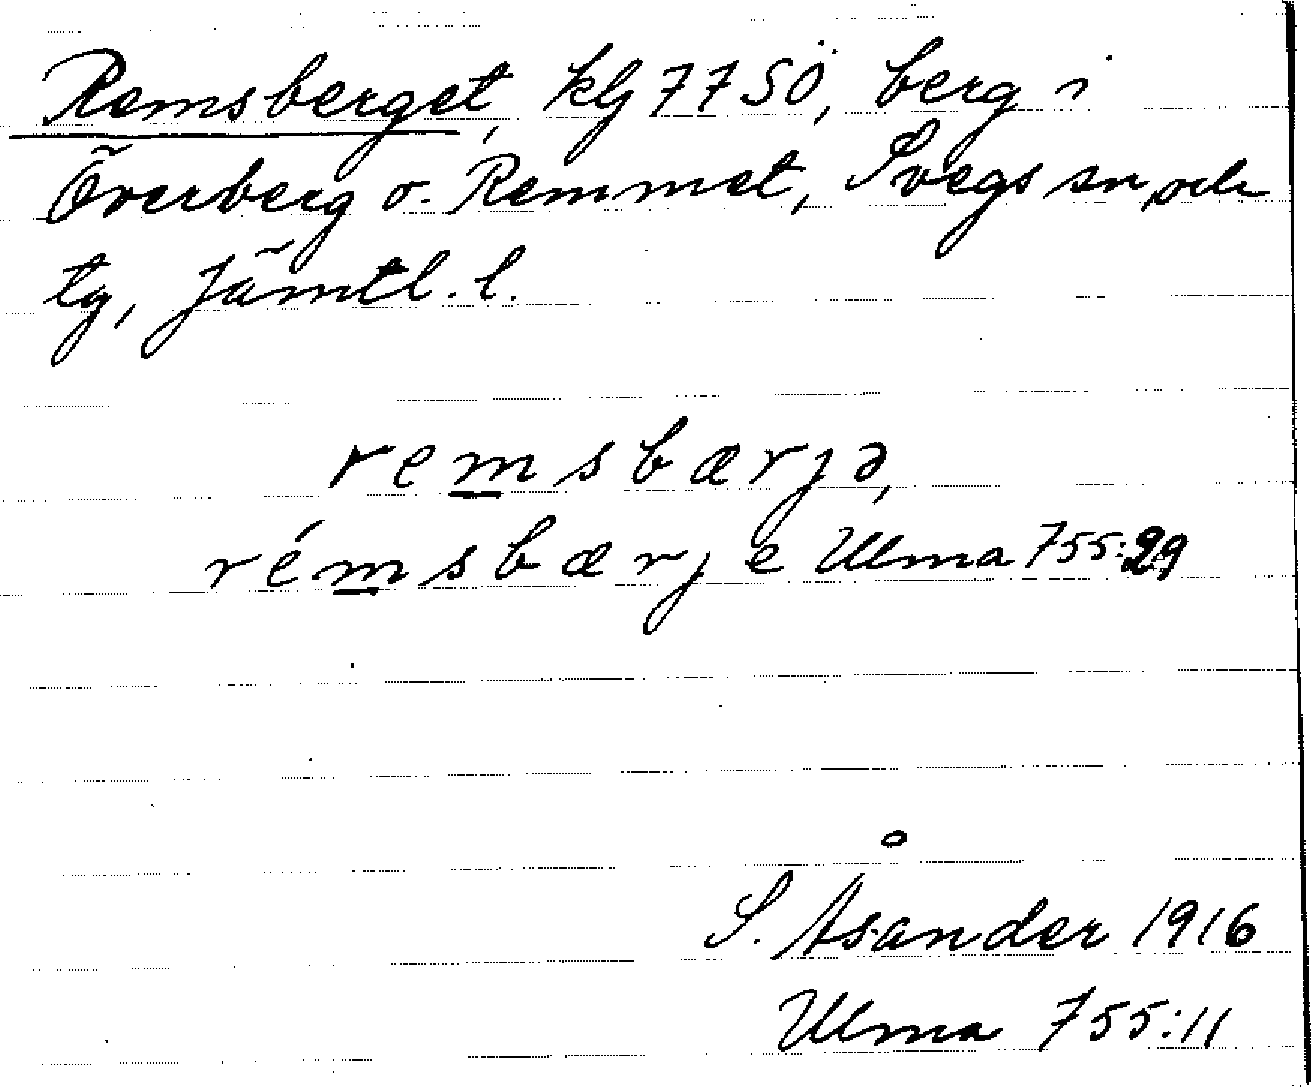 Remsberget, kbl 77 SÖ, berg i
Överberg o. Remmet, Svegs sn och
tg, Jämtl. l.
remsbærjə,
rémsbærje Ulma 755:29
S. Åsander 1916
Ulma 755:11